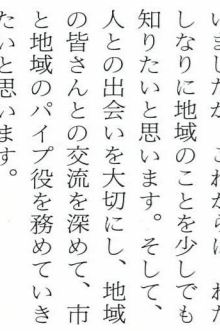 いましたが、これからは、わた
しなりに地域のことを少しでも
知りたいと思います。そして、
人との出会いを大切にし、地域
の皆さんとの交流を深めて、市
と地域のパイプ役を務めていき
たいと思います。